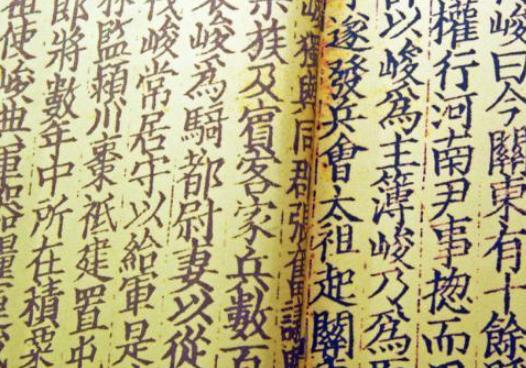 峻曰今關東有十餘
權行河南尹事揔而
以峻為主簿峻乃為
遂發兵會太祖起關
峻獨與同郡張奮議
族及賓客家兵數百
表峻為騎都尉妻以從
伐峻常居守以給軍是
林監潁川棗祗建置屯
郎將數年中所在積粟
祖使峻典軍器糧運